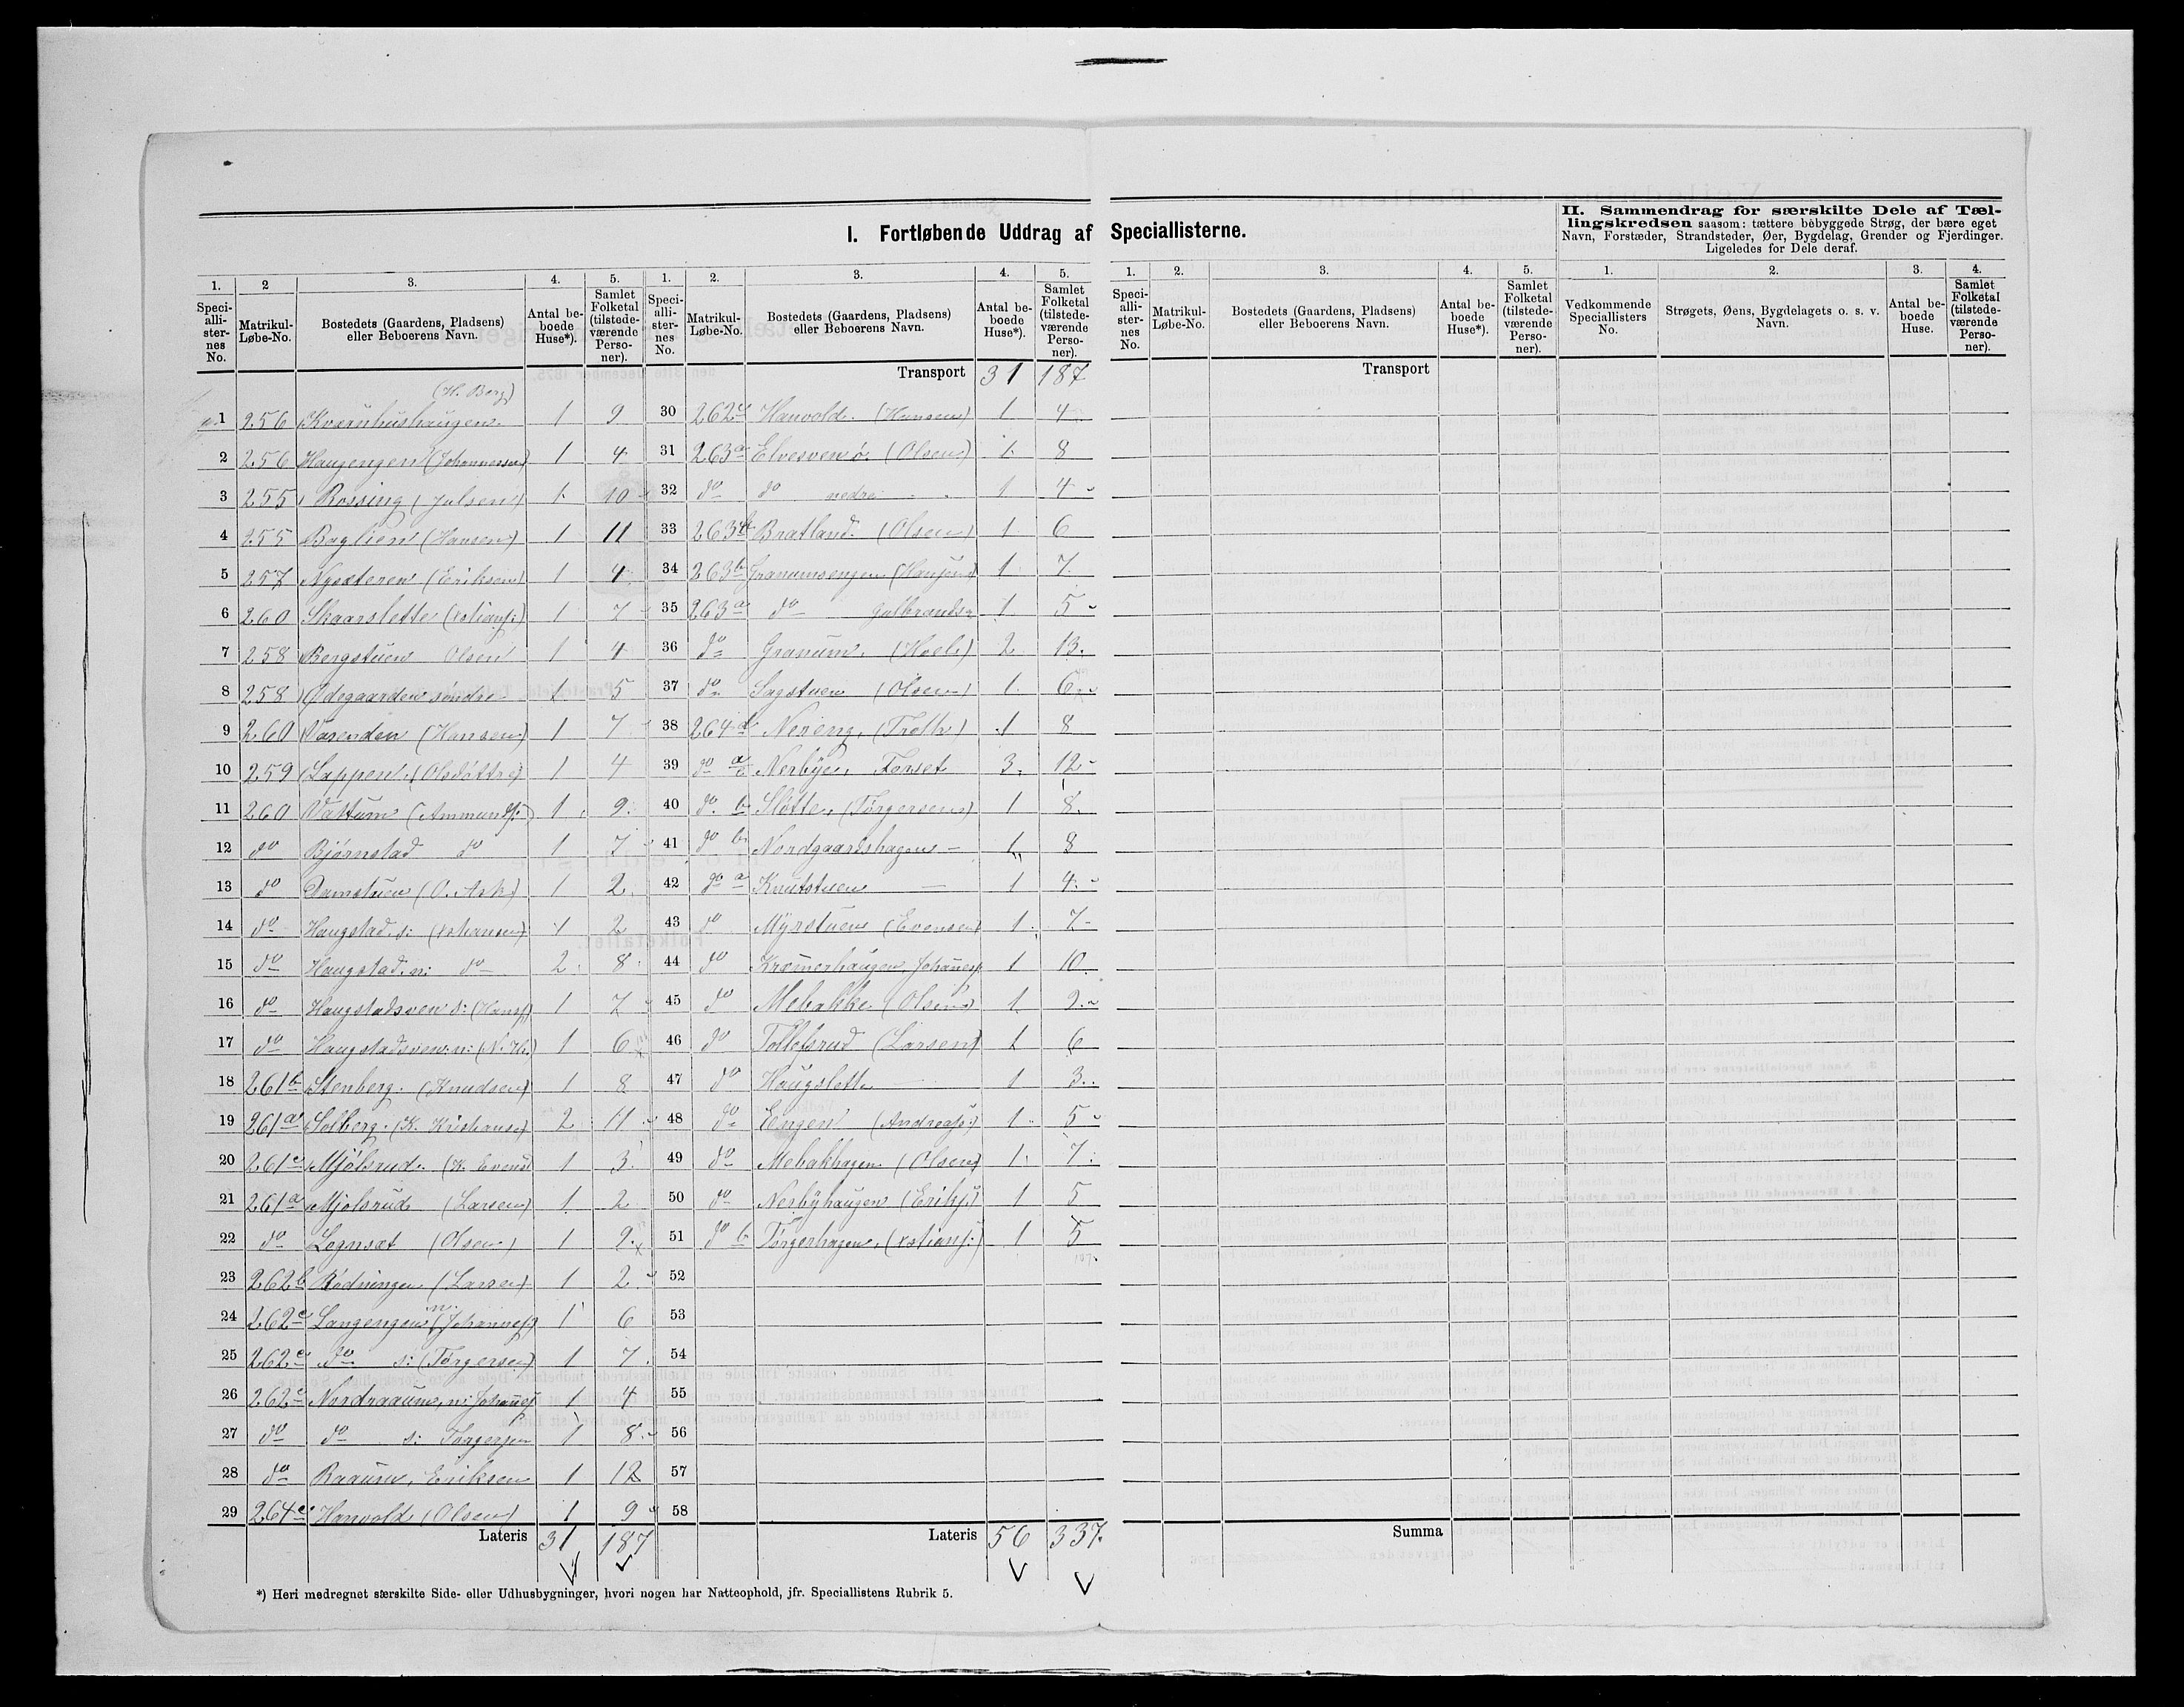 I. Fortløbende Uddrag af Speciallisterne.
II. Sammendrag for særskilte Dele af Tæl-
lingskredsen saasom: tættere bebyggede Strøg, der bære eget
Navn, Forstæder, Strandsteder, Øer, Bygdelag, Grender og Fjerdinger.
Ligeledes for Dele deraf.
1. 2 3. 4. 5. 1. 2. 3. 4. 5. 1. 2. 3. 4. 5. 1. 2. 3. 4.
Speci-alli-ster-nes No. Matrikul-Løbe-No. Bostedets (Gaardens, Pladsens) eller Beboerens Navn. Antal be-boede Huse*). Samlet Folketal (tilstede-værende Perso-ner).
Speci-alli-ster-nes No. Matrikul-Løbe-No. Bostedets (Gaardens, Pladsens) eller Beboerens Navn. Antal be-boede Huse*). Samlet Folketal (tilstede-værende Perso-ner).
Speci-alli-ster-nes No. Matrikul-Løbe-No. Bostedets (Gaardens, Pladsens) eller Beboerens Navn. Antal be-boede Huse*). Samlet Folketal (tilstede-værende Perso-ner).
Vedkommende Speciallisters No. Strøgets, Øens, Bygdelagets o. s. v. Navn. Antal be-boede Huse. Samlet Folketal (tilstede-værende Perso-ner).
Transport 31 187
Transport
(H. Berg)
1 256 Kværnhushaugen 1 9
2 256 Haugengen (Johannessen) 1 4
3 255 Rossing (Julsen) 1 10
4 255 Baglien (Hansen) 1 11
5 257 Nysæteren (Eriksen) 1 4
6 260 Skaarslette (Kstians:) 1 7
7 258 Bergstuen Olsen 1 4
8 258 Ødegaarden søndre 1 5
9 260 Vasenden (Hansen) 1 7
10 259 Lappen (Olsdottre) 1 4
11 260 Vattum (Ammunds:) 1 9
12 do Bjørnstad do 1 7
13 do Damstuen (O. Ask) 1 2
14 do Haugstad s: (Kstiansen) 1 2
15 do Haugstad n: do 2 8
16 do Haugstadsven s: (Hans) 1 7
17 do Haugstadsven n: 1 6
18 261b Stenberg (Knudsen) 1 8
19 261a Solberg (K. Kristiansen) 2 11
20 261c Mjølsrud (K. Evens) 1 3
21 261a Mjølsrud (Larsen) 1 2
22 do Lognsæt (Olsen) 1 9
23 262b Rødningen (Larsen) 1 2
24 262c Langengen n. (Johannes) 1 6
25 262c do s: (Torgersen) 1 7
26 262c Nordraaum, n: Johannes 1 4
27 do do s: Torgersen 1 8
28 do Raaum, Eriksen 1 12
29 264c Hanvold (Olsen) 1 9
Lateris 31 187
30 262c Hanvold (Hansen) 1 4
31 263a Elvesveno (Olsen) 1 8
32 do do nedre 1 4
33 263b Bratland (Olsen) 1 6
34 263b Granumsengen 1 7
35 263a do Gulbrands 1 5
36 do Granum (Hoel) 2 13
37 do Sagstuen (Olsen) 1 6
38 264d Nereng (Troth) 1 8
39 do a Nerbye, Forset 3 12
40 do b Slotte, (Torgersen) 1 8
41 do b Nordgaardshagen 1 8
42 do a Knutstuen 1 4
43 do Myrstuen (Evensen) 1 7
44 do Kræmerhaugen, Johannes 1 10
45 do Mebakke (Olsen) 1 9
46 do Tollefsrud (Larsen) 1 6
47 do Haugslette 1 3
48 do Engen (Andreas:) 1 5
49 do Mebakhagen (Olsen) 1 7
50 do Nerbyhaugen (Eriks) 1 5
51 do b Torgerhagen, (Kstians:) 1 5
52
53
54
55
56
57
58
Lateris 56 337
Summa
*) Heri medregnet særskilte Side- eller Udhusbygninger, hvori nogen har Natteophold, jfr. Speciallistens Rubrik 5.